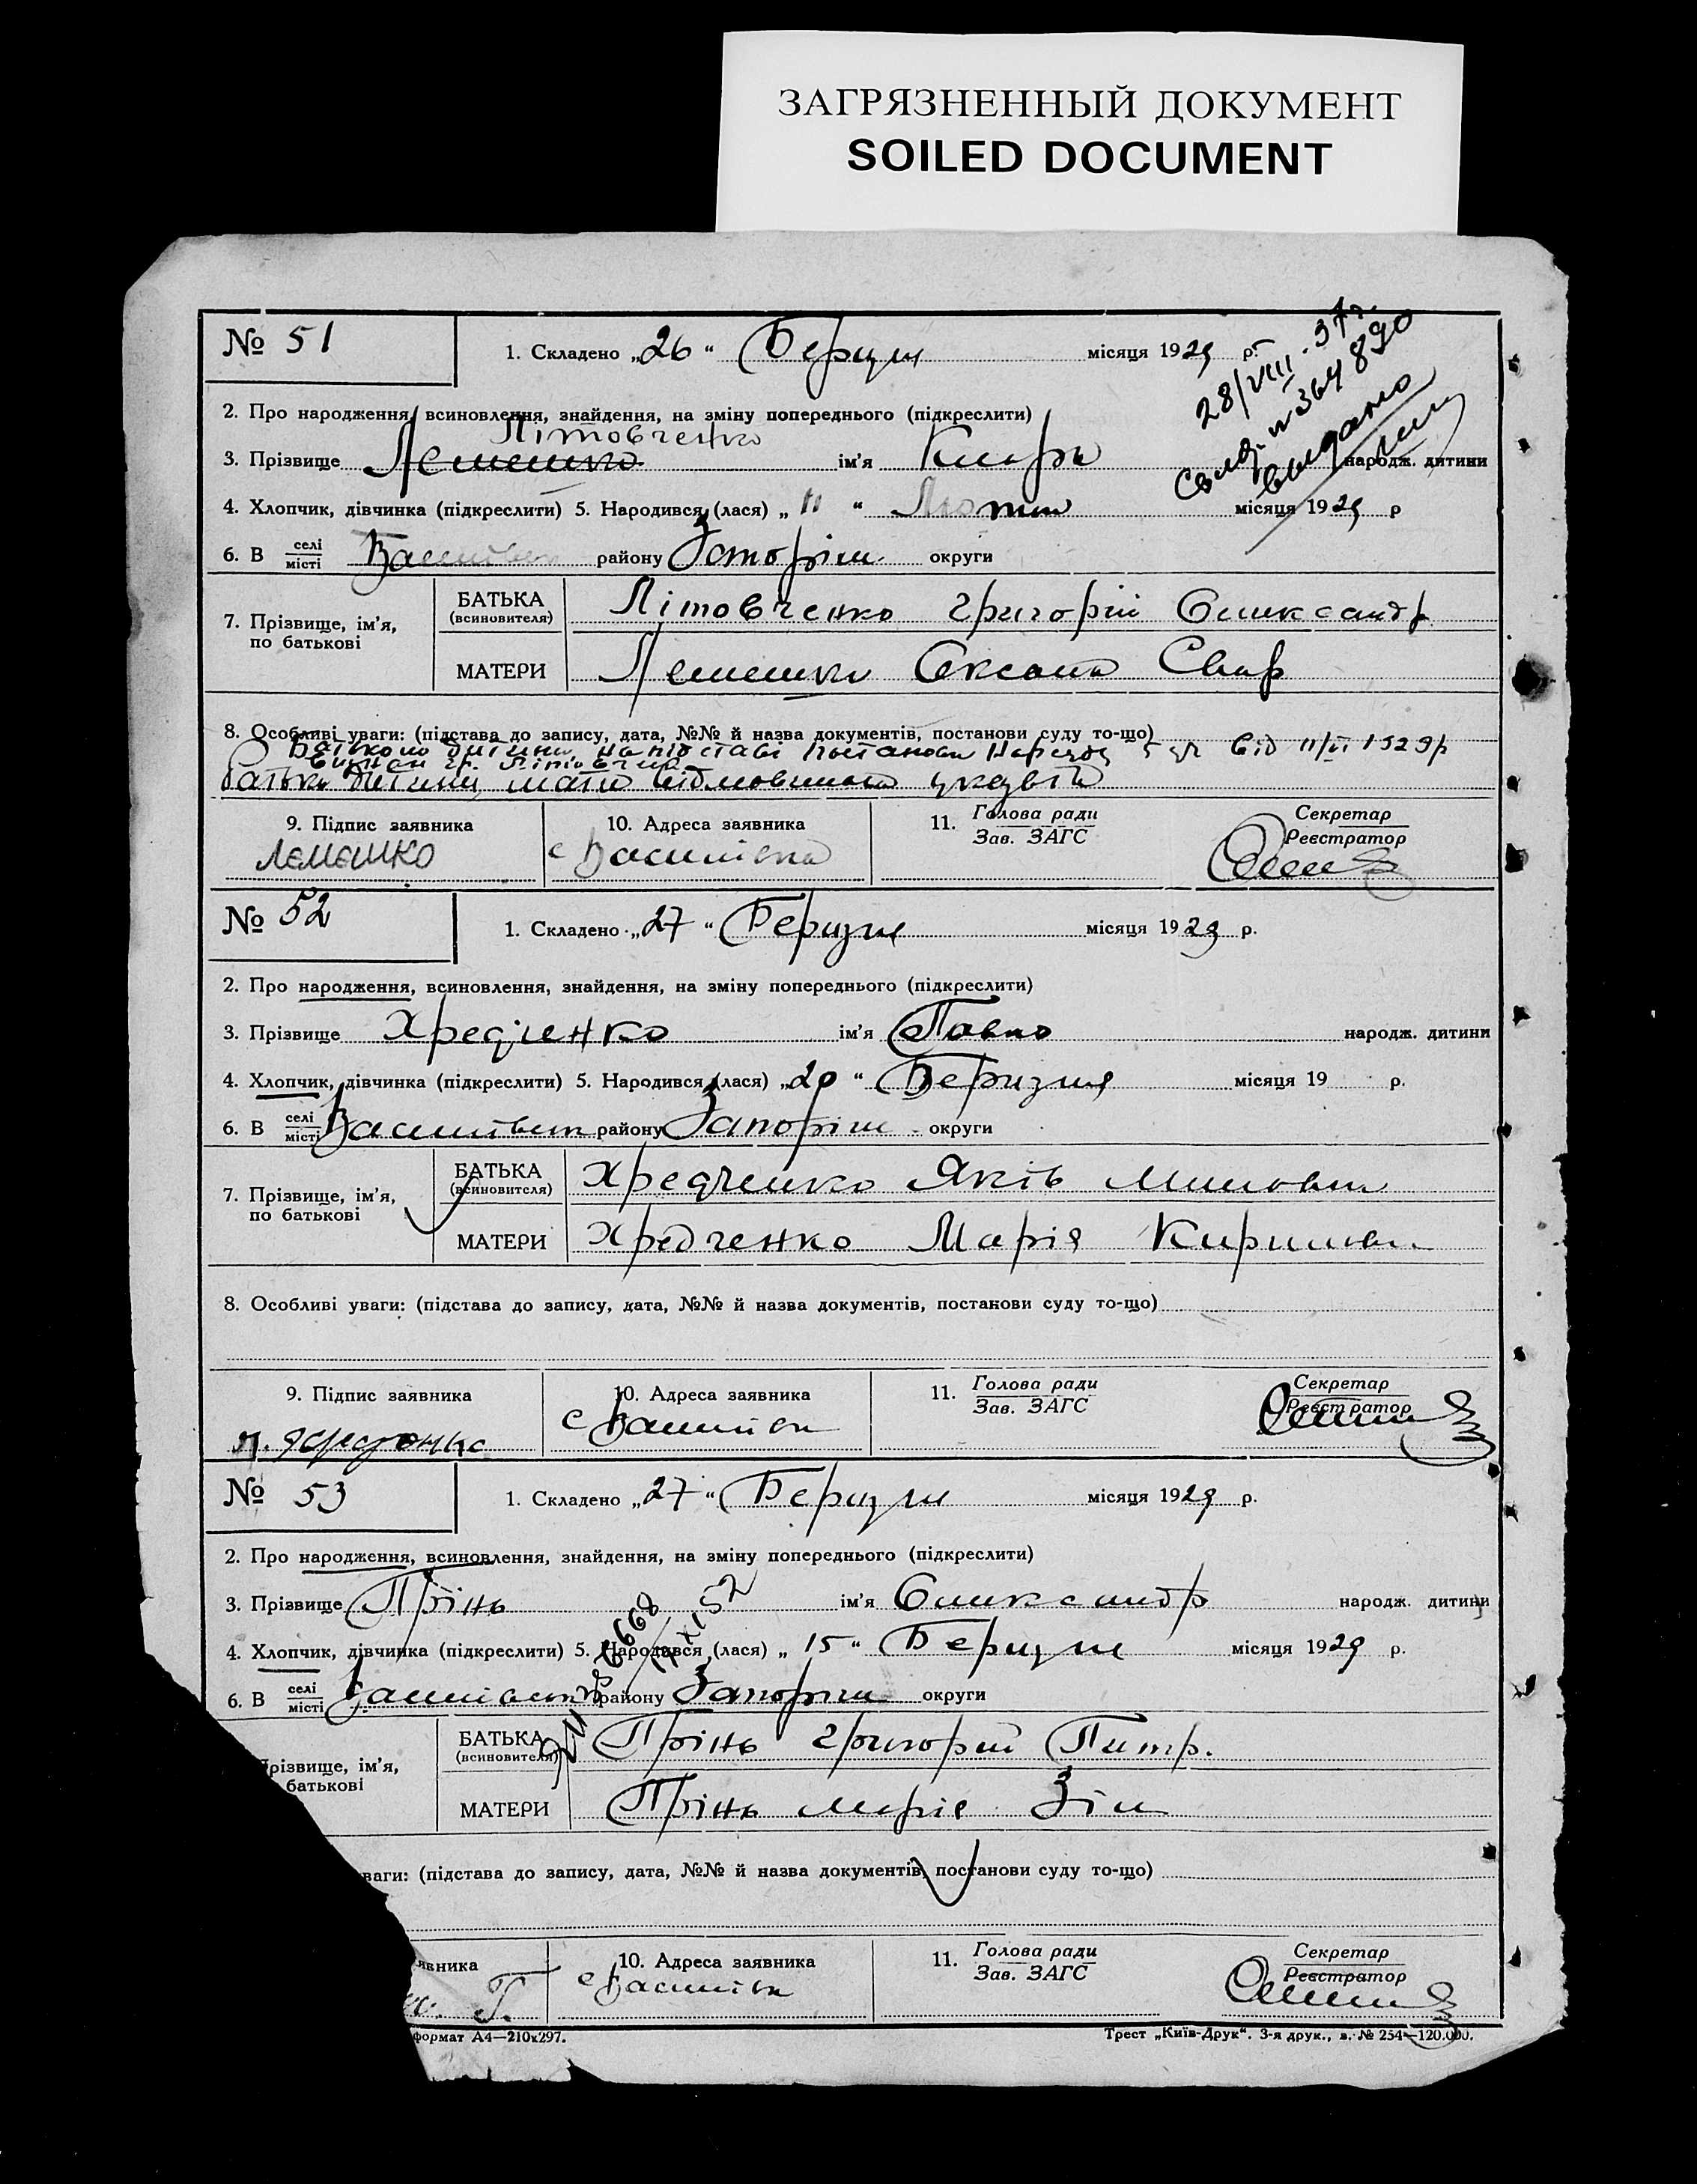 ЗАГРЯЗНЕННЫЙ ДОКУМЕНТ
SOILED DOCUMENT
№ 51
1. Складено „26“ Берізня місяця 1929 р.
28/VIII. 37г.
№ 364890
2. Про народження, всиновлення, знайдення, на зміну попереднього (підкреслити)
Літовченко
3. Прізвище Лемешко ім'я народж. дитини
4. Хлопчик, дівчинка (підкреслити) 5. Народився (лася) „11“ Лютня місяця 1929 р
6. В селі місті району Запоріж округи
7. Прізвище, ім'я, по батькові
БАТЬКА (всиновителя) Літовченко Григорій Олександр
МАТЕРИ Лемешко Оксана
8. Особливі уваги: (підстава до запису, дата, №№ й назва документів, постанови суду то-що)
Батьком дитини на підставі постанови від 11/VI 1929р
батька дитини мати відмовилась
9. Підпис заявника
10. Адреса заявника
11. Голова ради Зав. ЗАГС
Секретар Реєстратор
Лємєшко
с Василівка
№ 52
1. Складено „27“ Берізня місяця 1929 р.
2. Про народження, всиновлення, знайдення, на зміну попереднього (підкреслити)
3. Прізвище Хредченко ім'я Павло народж. дитини
4. Хлопчик, дівчинка (підкреслити) 5. Народився (лася) „20“ Берізня місяця 19 р.
6. В селі місті Василівки району Запоріж округи
7. Прізвище, ім'я, по батькові
БАТЬКА (всиновителя) Хредченко Яків
МАТЕРИ Хредченко Марія Кирилівн
8. Особливі уваги: (підстава до запису, дата, №№ й назва документів, постанови суду то-що)
9. Підпис заявника
10. Адреса заявника
11. Голова ради Зав. ЗАГС
Секретар Реєстратор
с Василівк
№ 53
1. Складено „27“ Берізня місяця 1929 р.
2. Про народження, всиновлення, знайдення, на зміну попереднього (підкреслити)
3. Прізвище Прінь ім'я Олександр народж. дитини
4. Хлопчик, дівчинка (підкреслити) 5. Народився (лася) „15“ Берізня місяця 1929 р.
6. В селі місті Василівки району Запоріж округи
різвище, ім'я, батькові
БАТЬКА (всиновителя) Прінь Григорій Питр.
МАТЕРИ Прінь Марія Зін
ваги: (підстава до запису, дата, №№ й назва документів, постанови суду то-що)
явника
10. Адреса заявника
11. Голова ради Зав. ЗАГС
Секретар Реєстратор
с Василівк
формат А4—210х297.
Трест „Київ-Друк“. 3-я друк., з. № 254—120.000.